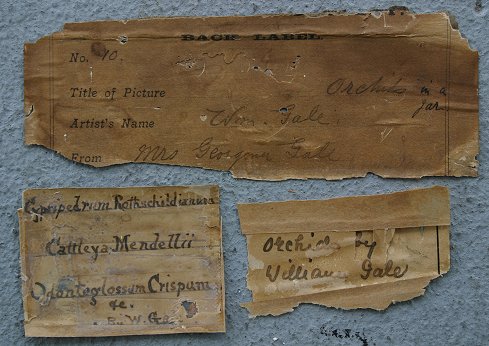 BACK LABEL.
No. 10.
Title of Picture Orchids in a
jar
Artist's Name Wm. Gale.
From Mrs Georgina Gale
Cypripedium Rothschildianum
Cattleya Mendellii
Odontoglossum Crispum
&c.
By W. Gale
Orchids by
William Gale